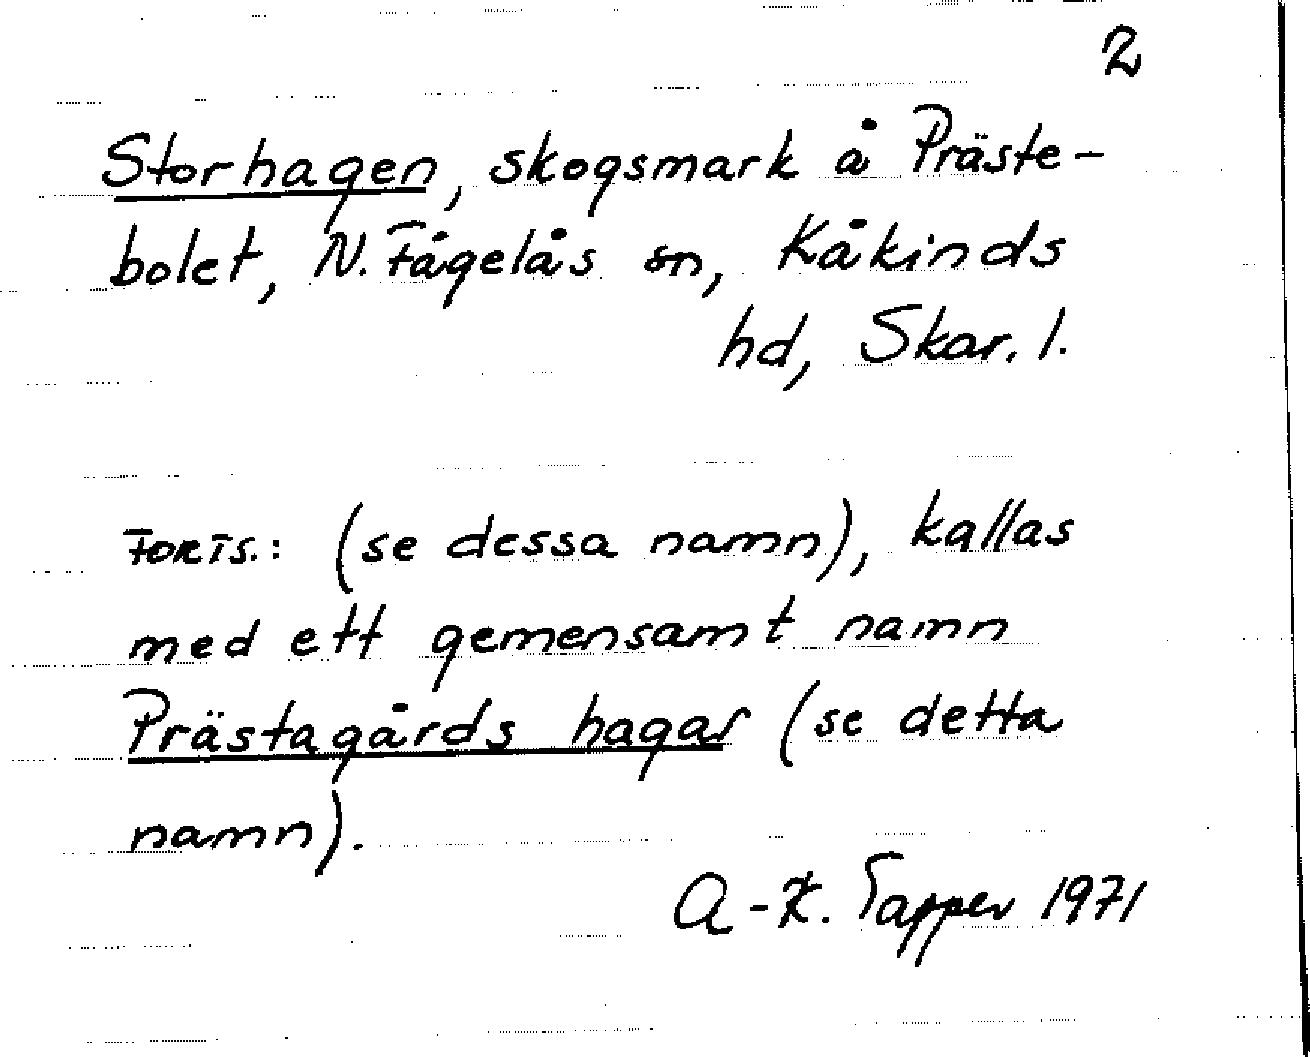 2
Storhagen, skogsmark å Präste-
bolet, N. Fågelås sn, Kåkinds
hd, Skar. l.
FORTS.: (se dessa namn), kallas
med ett gemensamt namn
Prästagårds hagar (se detta
namn).
A-K. Tapper 1971